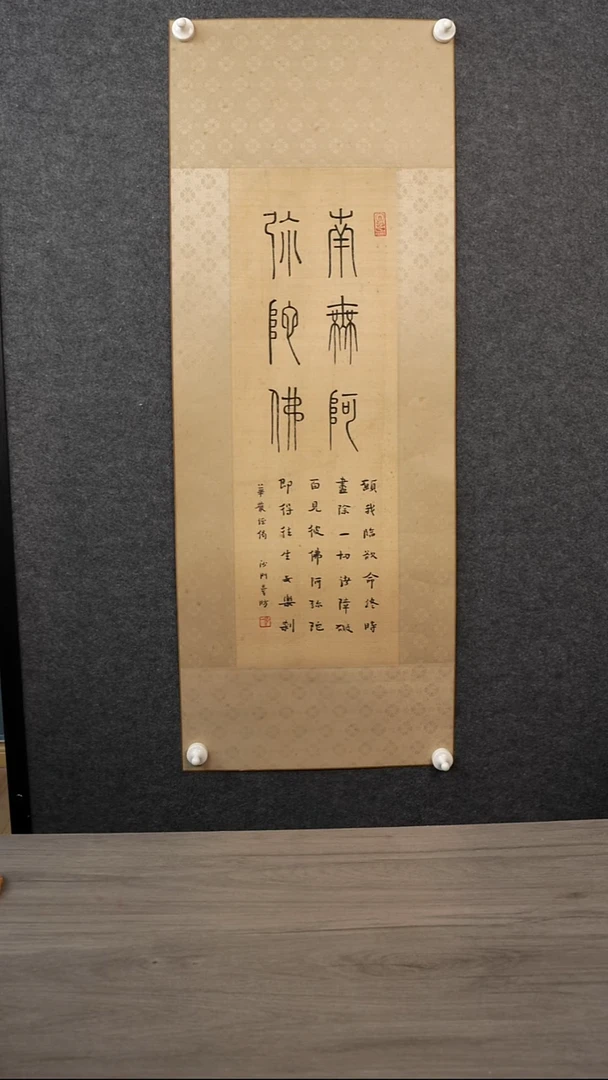 南無阿
弥陀佛
願我臨欲命終時
盡除一切諸障礙
面見彼佛阿弥陀
即得往生安樂刹
華嚴經偈 沙門